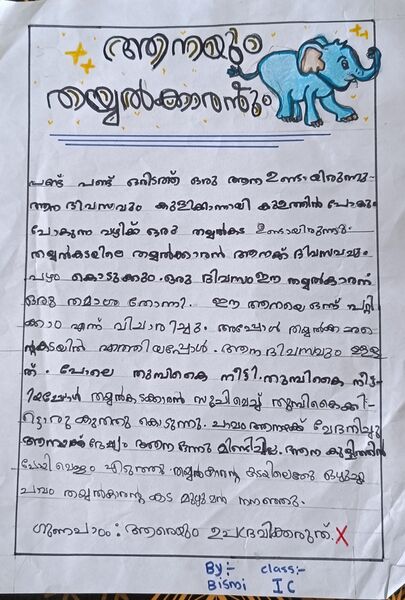 ആനയും
തയ്യൽക്കാരനും
പണ്ട് പണ്ട് ഒരിടത്ത് ഒരു ആന ഉണ്ടായിരുന്നു.
ആന ദിവസവും കുളിക്കാനായി കുളത്തിൽ പോകും
പോകുന്ന വഴിക്ക് ഒരു തയ്യൽകട ഉണ്ടായിരുന്നു.
തയ്യൽകടയിലെ തയ്യൽക്കാരൻ ആനക്ക് ദിവസവും
പഴം കൊടുക്കും. ഒരു ദിവസം ഈ തയ്യൽകാരന്
ഒരു തമാശ തോന്നി. ഈ ആനയെ ഒന്ന് പറ്റി
ക്കാം എന്ന് വിചാരിച്ചു. അപ്പോൾ തയ്യൽക്കാര
ന്റെകടയിൽ എത്തിയപ്പോൾ. ആന ദിവസവും ഉള്ള
ത് പോലെ തുമ്പികൈ നീട്ടി. തുമ്പികൈ നീട്ടി
യപ്പോൾ തയ്യൽകടക്കാരൻ സൂചിവെച്ച് തുമ്പികൈക്കി-
ട്ടൊരു കുത്തു കൊടുന്നു. പാവം ആനക്ക് വേദനിച്ചു
ആനക്ക് ദേഷ്യം ആന ഒന്നും മിണ്ടിയില്ല. ആന കുളത്തിൽ
പോയി വെള്ളം എടുത്തു തയ്യൽകാരന്റെ കടയിലെത്തി ഒഴിച്ചു
പാവം തയ്യൽകാരന്റെ കട മുഴുവൻ നനഞ്ഞു.
ഗുണപാഠം : ആരെയും ഉപദ്രവിക്കരുത്. X
By:- class:-
Bismi I C